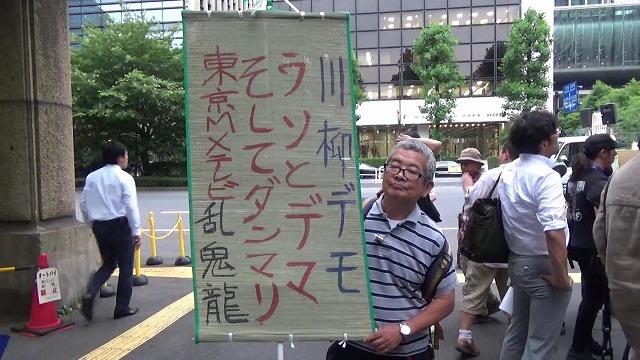 川柳デモ
ウソとデマ
そしてダンマリ
東京MXテレビ乱鬼龍
オートバイ
禁止